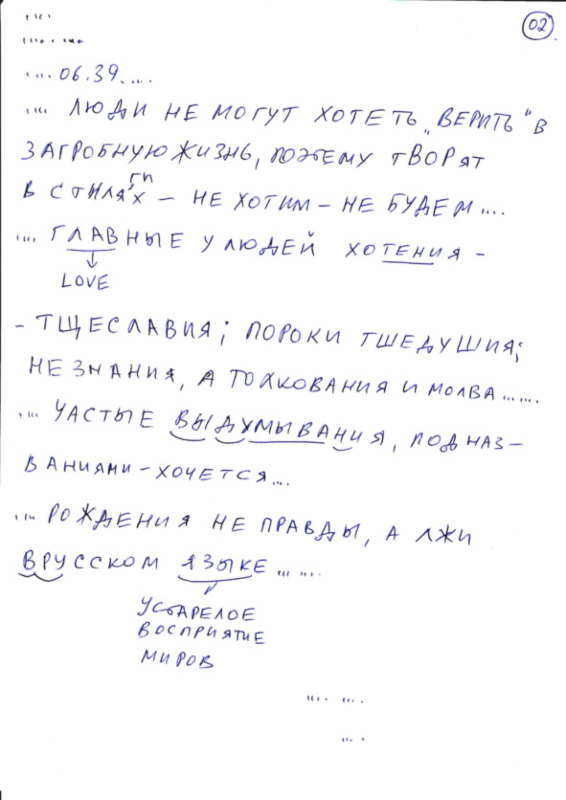 02.
.... 06.39.....
.... ЛЮДИ НЕ МОГУТ ХОТЕТЬ „ВЕРИТЬ" В
ЗАГРОБНУЮ ЖИЗНЬ, ПОЭТЕМУ ТВОРЯТ
ГИ
В СТИЛЯХ – НЕ ХОТИМ – НЕ БУДЕМ....
.... ГЛАВНЫЕ У ЛЮДЕЙ ХОТЕНИЯ –
LOVE
– ТЩЕСЛАВИЯ; ПОРОКИ ТЩЕДУШИЯ;
НЕ ЗНАНИЯ, А ТОЛКОВАНИЯ И МОЛВА......
.... ЧАСТЫЕ ВЫДУМЫВАНИЯ, ПОД НАЗ–
ВАНИЯМИ – ХОЧЕТСЯ....
.... РОЖДЕНИЯ НЕ ПРАВДЫ, А ЛЖИ
В РУССКОМ ЯЗЫКЕ .... ...
УСТАРЕЛОЕ
ВОСПРИЯТИЕ
МИРОВ